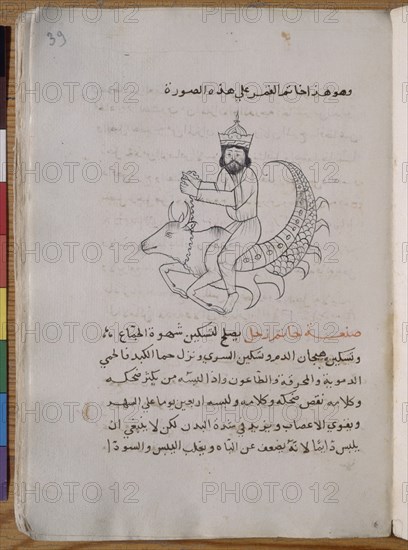 39
وهو هذا خاتم القمر على هذه الصورة
صنعة خاتم زحل يصلح لتسكين شهوة الجماع
وتسكين هيجان الدم وتسكين السوى ونزل حما الكبد فالحمى
الدموية والمحرقة والطاعون واذا البسه من يكثر ضحكه
وكلامه نقص ضحكه وكلامه ولبسه اربعين يوما على
ويقوي الاعصاب ويزيد في شدة البدن لكن لا ينبغي ان
يلبس دايما لانه يضعف عن الباه ويجلب اليبس والسودا
PHOTO 12